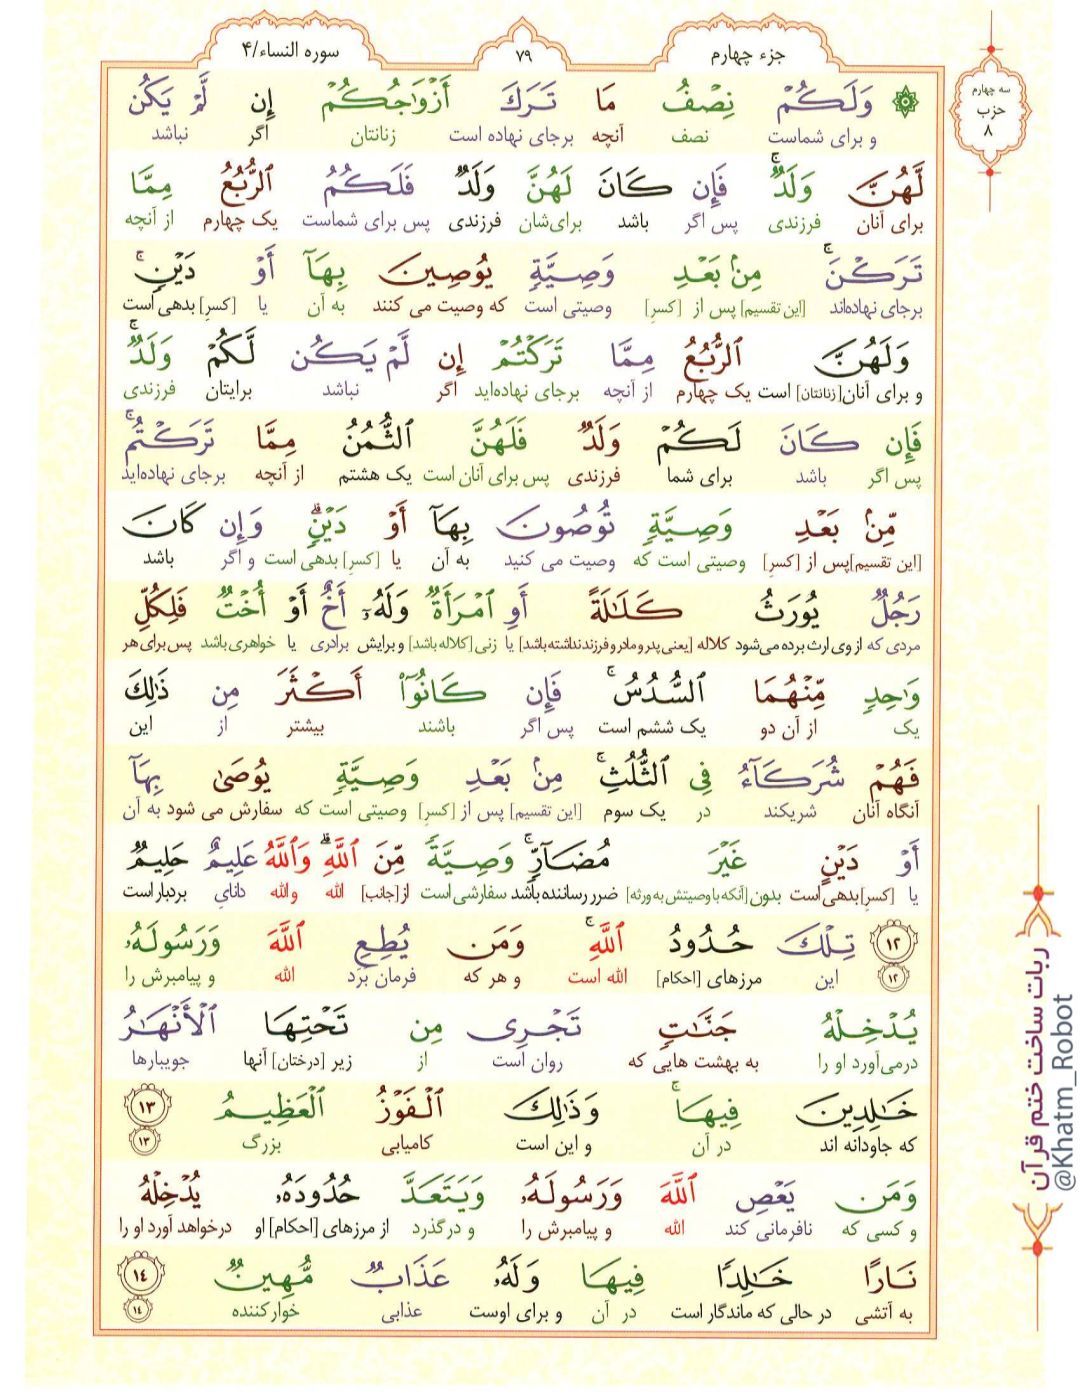 سوره النساء/۴
۷۹
جزء چهارم
سه چهارم
حزب
۸
وَلَكُمْ نِصْفُ مَا تَرَكَ أَزْوَٰجُكُمْ إِن لَّمْ يَكُن
و برای شماست نصف آنچه برجای نهاده است زنانتان اگر نباشد
لَّهُنَّ وَلَدٌ ۚ فَإِن كَانَ لَهُنَّ وَلَدٌ فَلَكُمُ ٱلرُّبُعُ مِمَّا
برای آنان فرزندی پس اگر باشد برای‌شان فرزندی پس برای شماست یک چهارم از آنچه
تَرَكْنَ ۚ مِنۢ بَعْدِ وَصِيَّةٍ يُوصِينَ بِهَآ أَوْ دَيْنٍ ۚ
برجای نهاده‌اند [این تقسیم] پس از [کسرِ] وصیتی است که وصیت می کنند به آن یا [کسرِ] بدهی است
وَلَهُنَّ ٱلرُّبُعُ مِمَّا تَرَكْتُمْ إِن لَّمْ يَكُن لَّكُمْ وَلَدٌ ۚ
و برای آنان[زنانتان] است یک چهارم از آنچه برجای نهاده‌اید اگر نباشد برایتان فرزندی
فَإِن كَانَ لَكُمْ وَلَدٌ فَلَهُنَّ ٱلثُّمُنُ مِمَّا تَرَكْتُم ۚ
پس اگر باشد برای شما فرزندی پس برای آنان است یک هشتم از آنچه برجای نهاده‌اید
مِّنۢ بَعْدِ وَصِيَّةٍ تُوصُونَ بِهَآ أَوْ دَيْنٍ ۗ وَإِن كَانَ
[این تقسیم]پس از [کسرِ] وصیتی است که وصیت می کنید به آن یا [کسرِ] بدهی است و اگر باشد
رَجُلٌ يُورَثُ كَلَٰلَةً أَوِ ٱمْرَأَةٌ وَلَهُۥٓ أَخٌ أَوْ أُخْتٌ فَلِكُلِّ
مردی که از وی ارث برده می‌شود کلاله [یعنی پدر و مادر و فرزند نداشته باشد] یا زنی [کلاله باشد] و برایش برادری یا خواهری باشد پس برای هر
وَٰحِدٍ مِّنْهُمَا ٱلسُّدُسُ ۚ فَإِن كَانُوٓا۟ أَكْثَرَ مِن ذَٰلِكَ
یک از آن دو یک ششم است پس اگر باشند بیشتر از این
فَهُمْ شُرَكَآءُ فِى ٱلثُّلُثِ ۚ مِنۢ بَعْدِ وَصِيَّةٍ يُوصَىٰ بِهَآ
آنگاه آنان شریکند در یک سوم [این تقسیم] پس از [کسرِ] وصیتی است که سفارش می شود به آن
أَوْ دَيْنٍ غَيْرَ مُضَآرٍّ ۚ وَصِيَّةً مِّنَ ٱللَّهِ ۗ وَٱللَّهُ عَلِيمٌ حَلِيمٌ
یا [کسرِ]بدهی است بدون [آنکه با وصیتش به ورثه] ضرر رساننده باشد سفارشی است از[جانب] الله والله دانایِ بردبار است
﴿۱۲﴾ تِلْكَ حُدُودُ ٱللَّهِ ۚ وَمَن يُطِعِ ٱللَّهَ وَرَسُولَهُۥ
۱۲ این مرزهای [احکام] الله است و هر که فرمان بَرَد الله و پیامبرش را
يُدْخِلْهُ جَنَّٰتٍ تَجْرِى مِن تَحْتِهَا ٱلْأَنْهَٰرُ
درمی‌آورد او را به بهشت هایی که روان است از زیر [درختان] آنها جویبارها
خَٰلِدِينَ فِيهَا ۚ وَذَٰلِكَ ٱلْفَوْزُ ٱلْعَظِيمُ ﴿۱۳﴾
که جاودانه اند در آن و این است کامیابی بزرگ ۱۳
وَمَن يَعْصِ ٱللَّهَ وَرَسُولَهُۥ وَيَتَعَدَّ حُدُودَهُۥ يُدْخِلْهُ
و کسی که نافرمانی کند الله و پیامبرش را و درگذرد از مرزهای [احکام] او درخواهد آورد او را
نَارًا خَٰلِدًا فِيهَا وَلَهُۥ عَذَابٌ مُّهِينٌ ﴿۱۴﴾
به آتشی در حالی که ماندگار است در آن و برای اوست عذابی خوارکننده ۱۴
ربات ساخت ختم قرآن
@Khatm_Robot